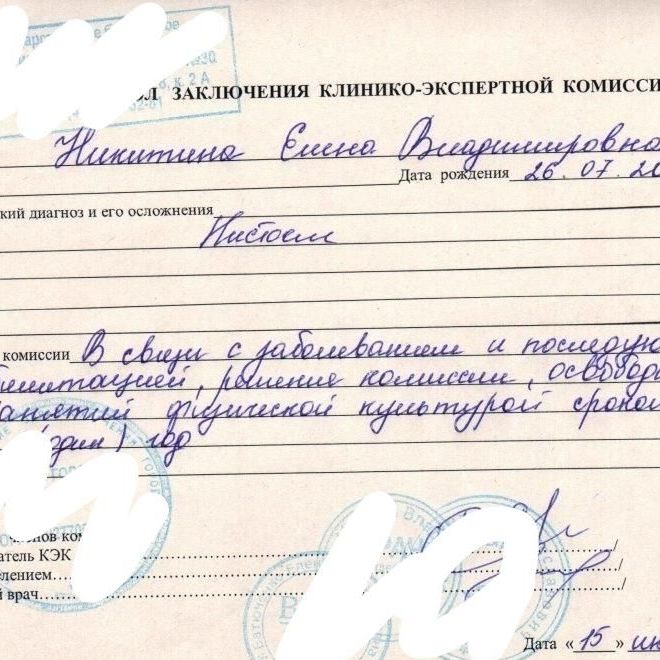 №30
, к. 2 А
ОЛ ЗАКЛЮЧЕНИЯ КЛИНИКО-ЭКСПЕРТНОЙ КОМИССИ
Никитина Елена Владимировна
Дата рождения 26.07.20
кий диагноз и его осложнения
комиссии В связи с заболеванием и последую
билитацией, решение комиссии, освободи
занятий физической культурой сроком
(один) год
членов ком
атель КЭК
елением
й врач
Дата «15» ию